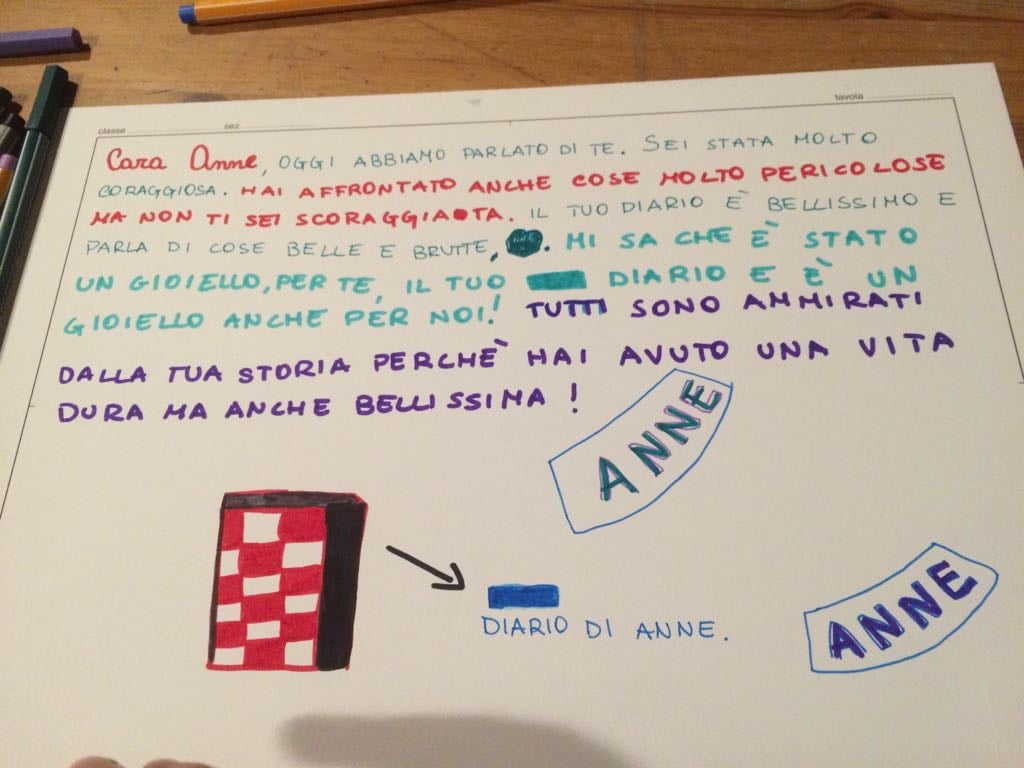 classe sez. tavola
Cara Anne, OGGI ABBIAMO PARLATO DI TE. SEI STATA MOLTO
CORAGGIOSA. HAI AFFRONTATO ANCHE COSE MOLTO PERICOLOSE
MA NON TI SEI SCORAGGIATA. IL TUO DIARIO È BELLISSIMO E
PARLA DI COSE BELLE E BRUTTE, . MI SA CHE È STATO
UN GIOIELLO, PER TE, IL TUO DIARIO E È UN
GIOIELLO ANCHE PER NOI! TUTTI SONO AMMIRATI
DALLA TUA STORIA PERCHÈ HAI AVUTO UNA VITA
DURA MA ANCHE BELLISSIMA!
ANNE
DIARIO DI ANNE.
ANNE